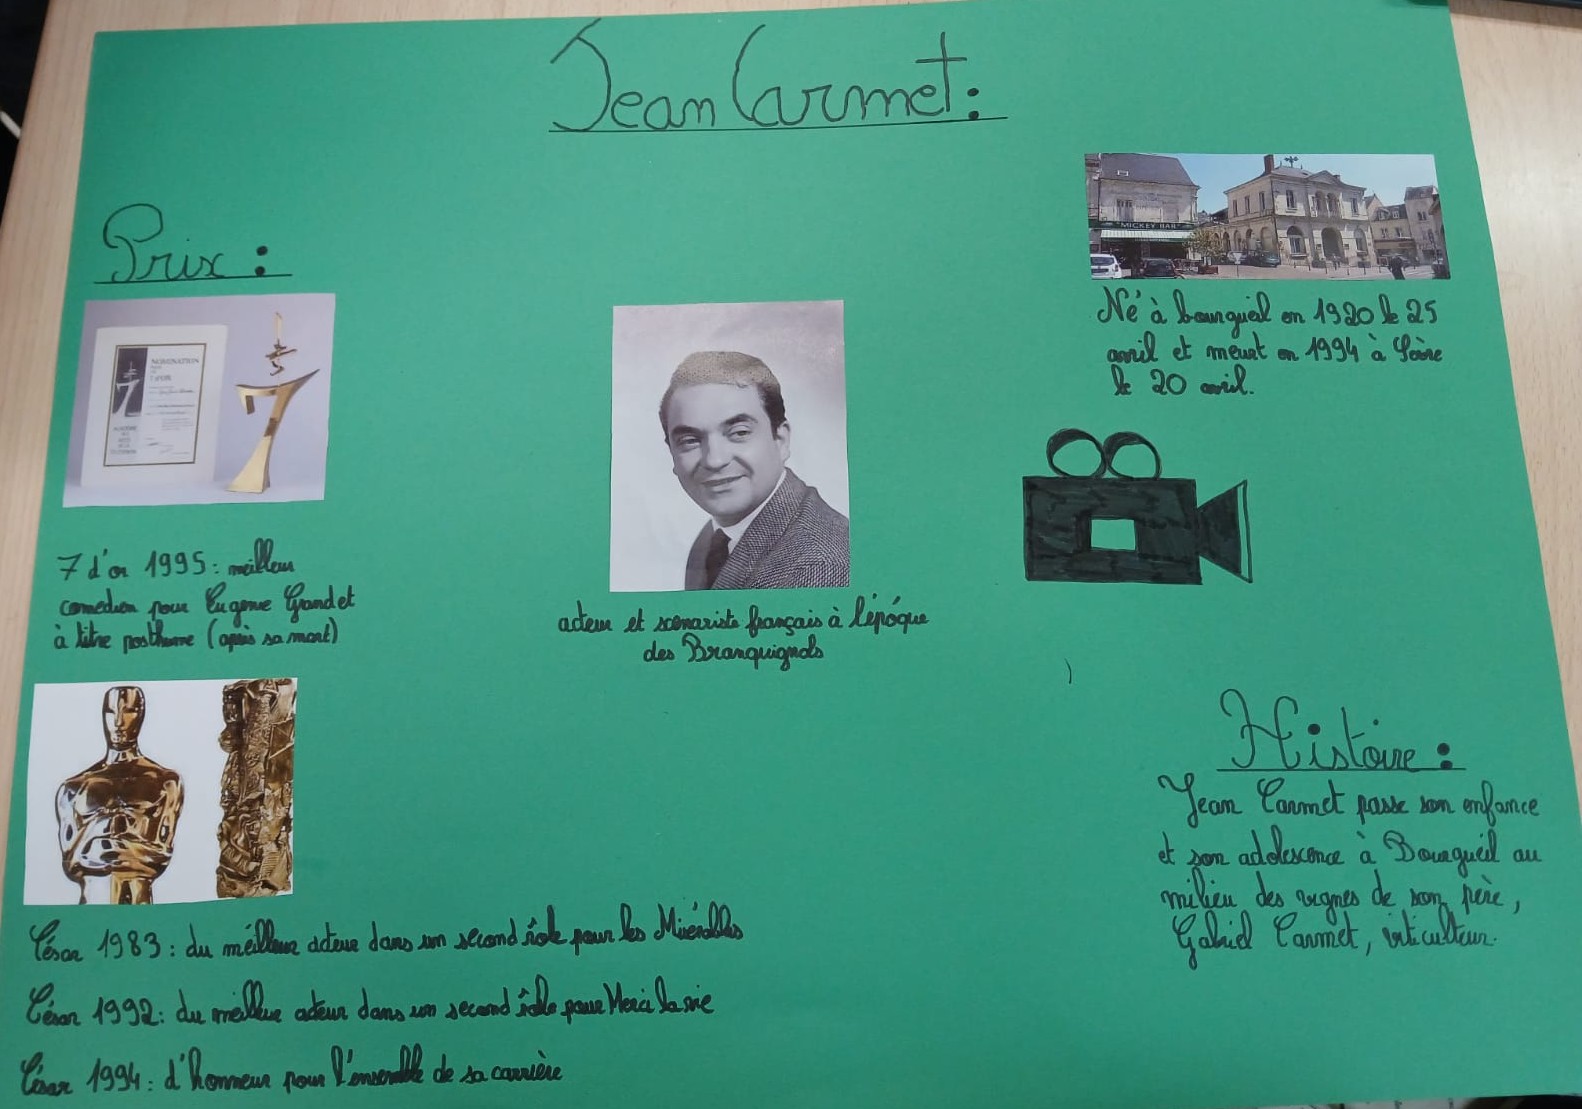 Jean Carmet:
Prix :
NOMINATION
7
MICKEY BAR
Né à bourgueil en 1920 le 25
avril et meurt en 1994 à Sèvre
le 20 avril.
7 d'or 1995 : meilleur
comedien pour Eugenie Grandet
à titre posthume (après sa mort)
acteur et scénariste français à l'époque
des Branquignols
Histoire :
Jean Carmet passe son enfance
et son adolescence à Bourgueil au
milieu des vignes de son père,
Gabriel Carmet, viticulteur.
César 1983 : du meilleur acteur dans un second rôle pour les Misérables
César 1992 : du meilleur acteur dans un second rôle pour Merci la vie
César 1994 : d'honneur pour l'ensemble de sa carrière